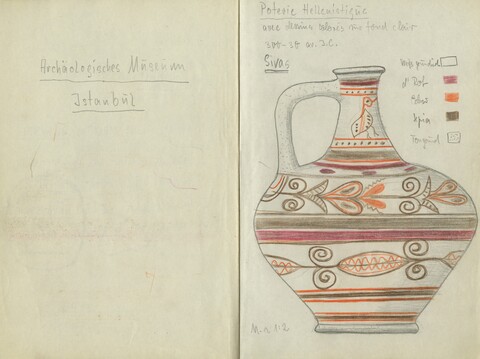 Archäologisches Müseum
Istanbül
Poterie Hellenistigüe
avec dessins colorés sur fond clair
300-30 av. J.C.
Sivas
Sepia
Tongrund
M. 1:2